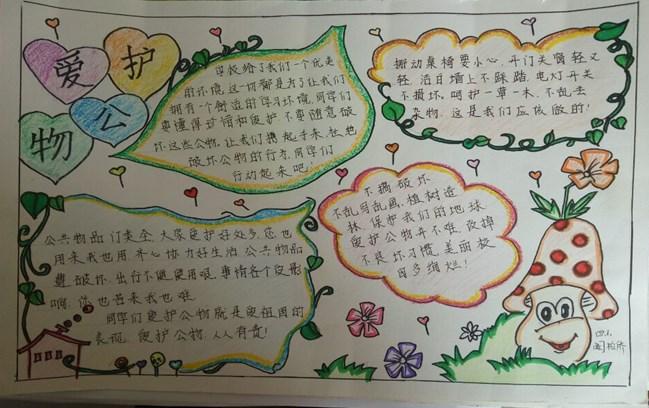 爱护
公物
学校给了我们一个优美
的环境,这一切都是为了让我们
拥有一个舒适的学习环境,同学们
要懂得珍惜和爱护,不要随意破
坏这些公物,让我们携起手来,杜绝
破坏公物的行为,同学们
行动起来吧!
搬动桌椅要小心,开门关窗轻又
轻,洁白墙上不踩踏,电灯开关
不损坏,呵护一草一木,不乱丢
杂物,这是我们应该做的!
公共物品门类全,大家爱护好处多,你也
用来我也用,齐心协力好生活,公共物品
遭破坏,出行不便
事情各个没
你也苦来我也难
同学们爱护公物就是爱祖国的
表现,爱护公物,人人有责!
不搞破坏
不乱写乱画,植树造
林,保护我们的地球
爱护公物并不难,改掉
不良坏习惯,美丽校
园多绚烂!
四.1.